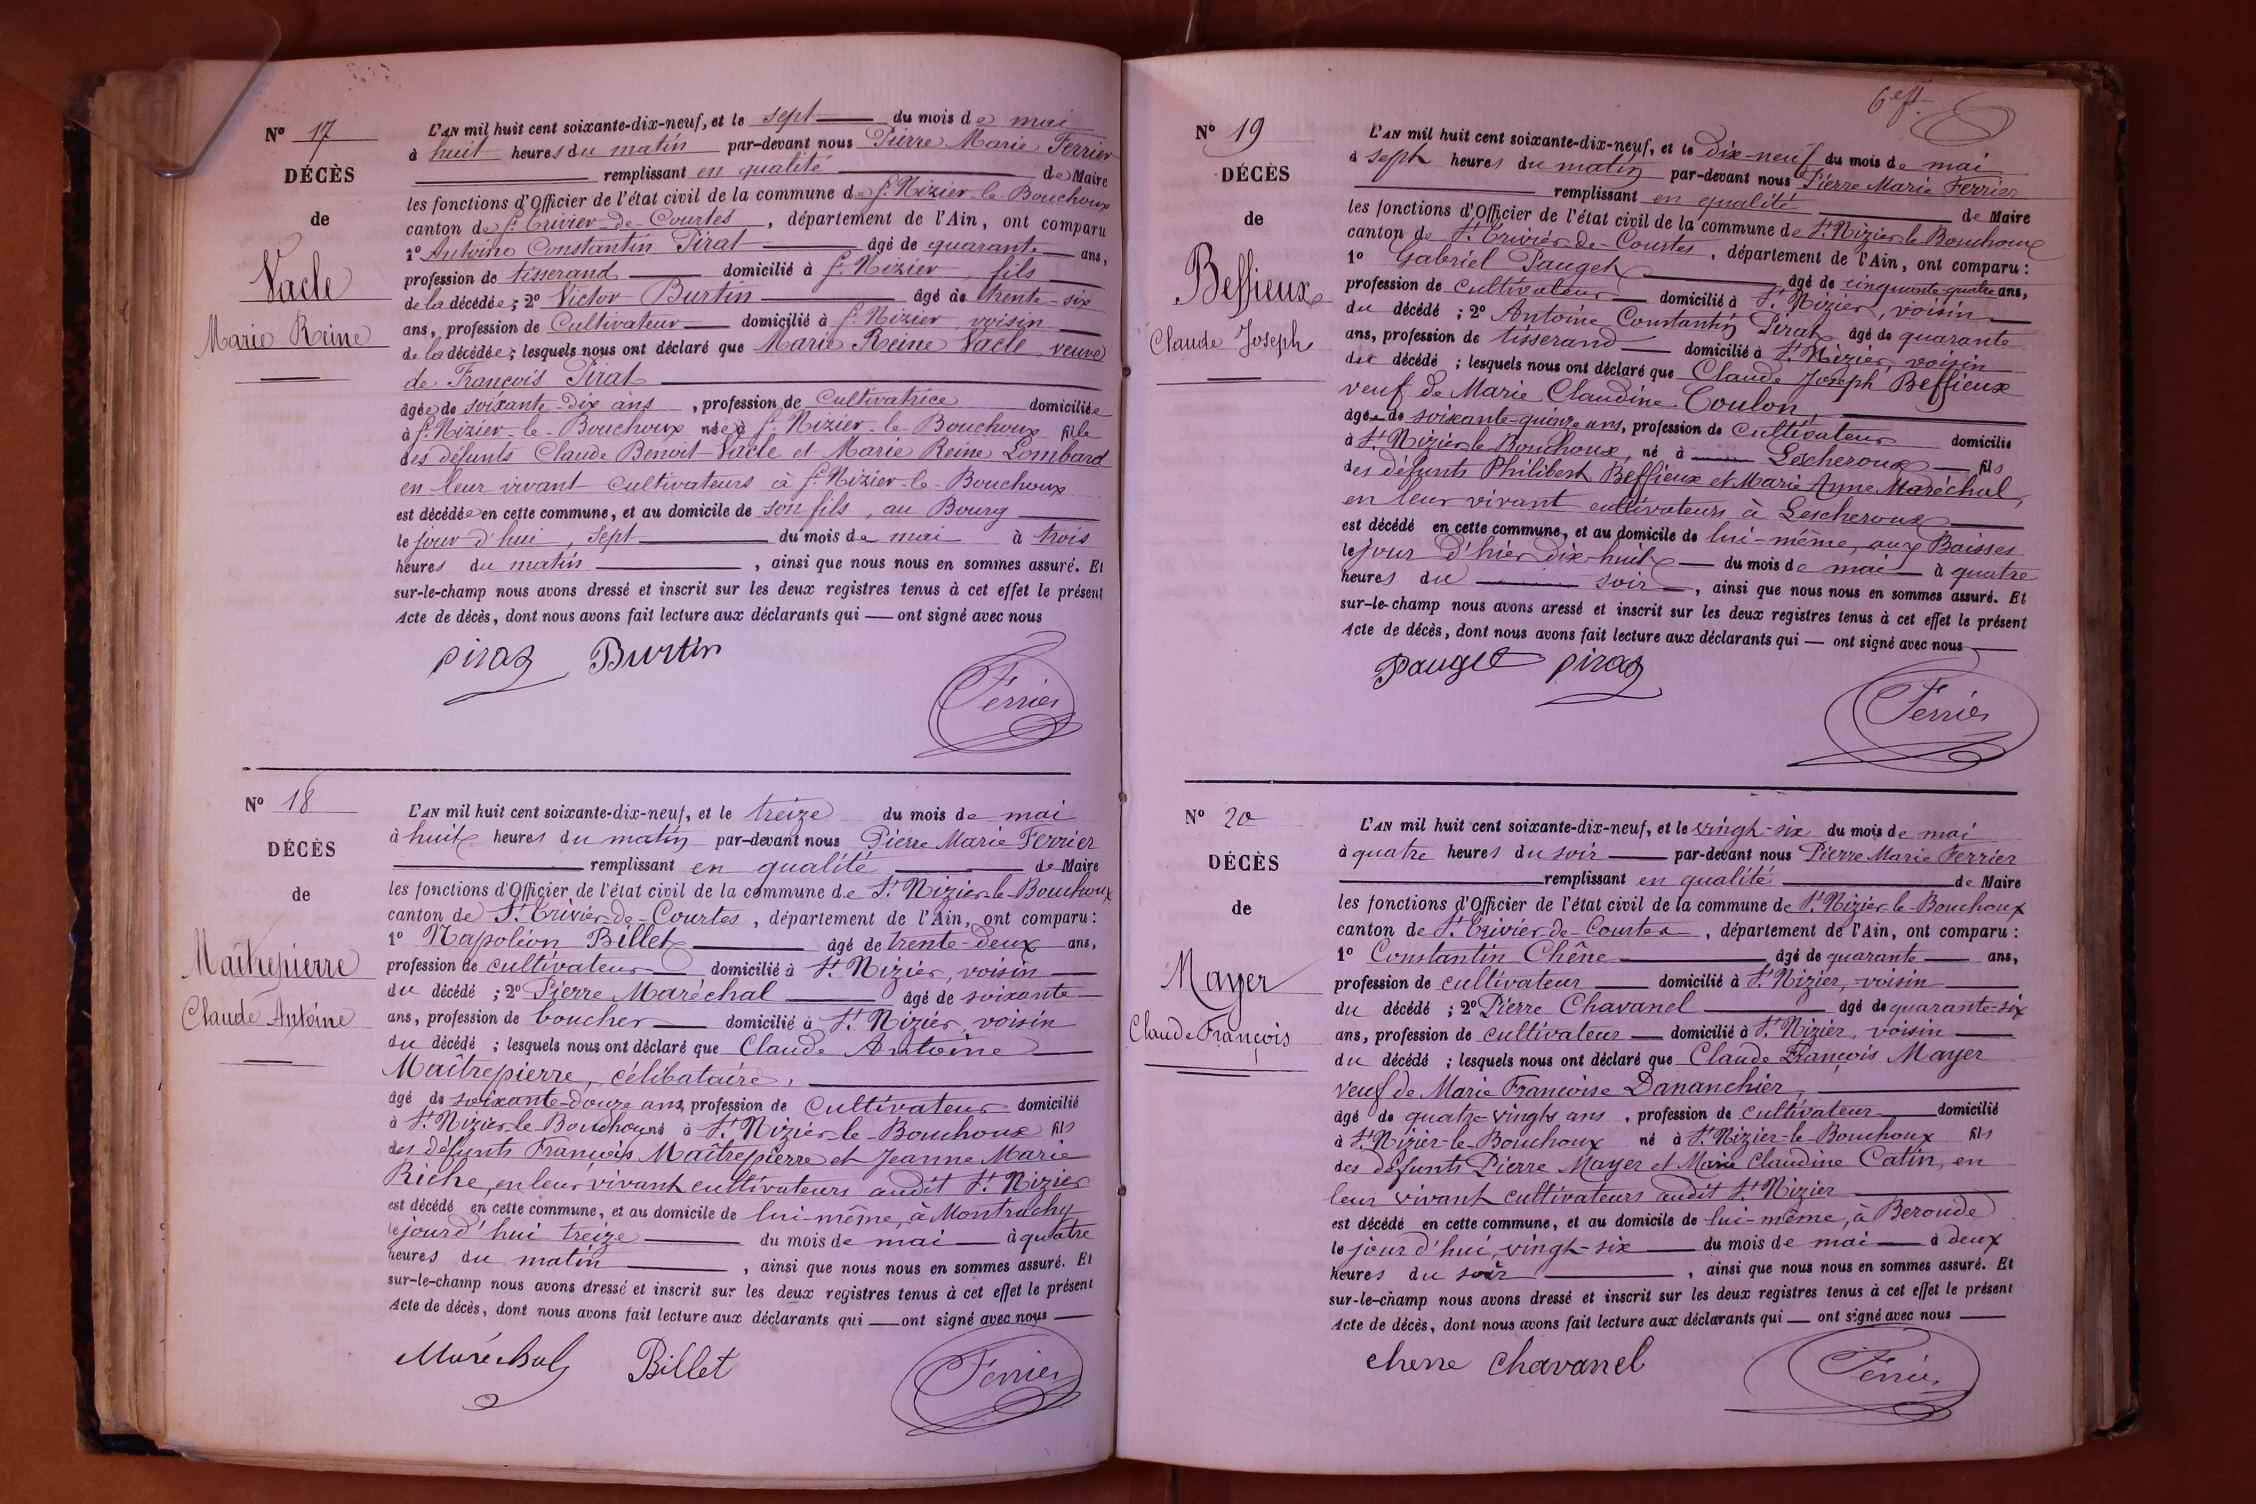 Nº 17
DÉCÈS
de
Vacle
Marie Reine
L'AN mil huit cent soixante-dix-neuf, et le sept du mois de mai
à huit heures du matin par-devant nous Pierre Marie Ferrier
remplissant en qualité de Maire
les fonctions d'Officier de l'état civil de la commune de St Nizier-le-Bouchoux
canton de St Trivier-de-Courtes, département de l'Ain, ont comparu
1º Antoine Constantin Pirat âgé de quarante ans,
profession de tisserand domicilié à St Nizier, fils
de la décédée ; 2º Victor Burtin âgé de trente-six
ans, profession de Cultivateur domicilié à St Nizier voisin
de la décédée ; lesquels nous ont déclaré que Marie Reine Vacle veuve
de François Pirat
âgée de soixante-dix ans, profession de Cultivatrice domiciliée
à St Nizier-le-Bouchoux née à St Nizier-le-Bouchoux fille
des défunts Claude Benoit Vacle et Marie Reine Lombard
en leur vivant cultivateurs à St Nizier-le-Bouchoux
est décédée en cette commune, et au domicile de son fils, au Bourg
le jour d'hui, sept du mois de mai à trois
heures du matin, ainsi que nous nous en sommes assuré. Et
sur-le-champ nous avons dressé et inscrit sur les deux registres tenus à cet effet le présent
Acte de décès, dont nous avons fait lecture aux déclarants qui ont signé avec nous
Pirat Burtin
Ferrier
Nº 18
DÉCÈS
de
Maîtrepierre
Claude Antoine
L'AN mil huit cent soixante-dix-neuf, et le treize du mois de mai
à huit heures du matin par-devant nous Pierre Marie Ferrier
remplissant en qualité de Maire
les fonctions d'Officier de l'état civil de la commune de St Nizier-le-Bouchoux
canton de St Trivier-de-Courtes, département de l'Ain, ont comparu :
1º Napoléon Billet âgé de trente-deux ans,
profession de cultivateur domicilié à St Nizier, voisin
du décédé ; 2º Pierre Maréchal âgé de soixante
ans, profession de boucher domicilié à St Nizier, voisin
du décédé ; lesquels nous ont déclaré que Claude Antoine
Maîtrepierre, célibataire,
âgé de soixante-douze ans, profession de Cultivateur domicilié
à St Nizier-le-Bouchoux né à St Nizier-le-Bouchoux fils
des défunts François Maîtrepierre et Jeanne Marie
Riche, en leur vivant cultivateurs audit St Nizier
est décédé en cette commune, et au domicile de lui-même, à Montrachy
le jour d'hui treize du mois de mai à quatre
heures du matin, ainsi que nous nous en sommes assuré. Et
sur-le-champ nous avons dressé et inscrit sur les deux registres tenus à cet effet le présent
Acte de décès, dont nous avons fait lecture aux déclarants qui ont signé avec nous
Maréchal Billet
Ferrier
Nº 19
DÉCÈS
de
Beffieux
Claude Joseph
L'AN mil huit cent soixante-dix-neuf, et le dix-neuf du mois de mai
à sept heures du matin par-devant nous Pierre Marie Ferrier
remplissant en qualité de Maire
les fonctions d'Officier de l'état civil de la commune de St Nizier-le-Bouchoux
canton de St Trivier-de-Courtes, département de l'Ain, ont comparu :
1º Gabriel Pauget âgé de cinquante-quatre ans,
profession de cultivateur domicilié à St Nizier, voisin
du décédé ; 2º Antoine Constantin Pirat âgé de quarante
ans, profession de tisserand domicilié à St Nizier, voisin
du décédé ; lesquels nous ont déclaré que Claude Joseph Beffieux
veuf de Marie Claudine Coulon,
âgé de soixante-quinze ans, profession de Cultivateur domicilié
à St Nizier-le-Bouchoux, né à Lescheroux fils
des défunts Philibert Beffieux et Marie Anne Maréchal,
en leur vivant cultivateurs à Lescheroux
est décédé en cette commune, et au domicile de lui-même, aux Baisses
le jour d'hier dix-huit du mois de mai à quatre
heures du soir, ainsi que nous nous en sommes assuré. Et
sur-le-champ nous avons dressé et inscrit sur les deux registres tenus à cet effet le présent
Acte de décès, dont nous avons fait lecture aux déclarants qui ont signé avec nous
Pauget Pirat
Ferrier
Nº 20
DÉCÈS
de
Mayer
Claude François
L'AN mil huit cent soixante-dix-neuf, et le vingt-six du mois de mai
à quatre heures du soir par-devant nous Pierre Marie Ferrier
remplissant en qualité de Maire
les fonctions d'Officier de l'état civil de la commune de St Nizier-le-Bouchoux
canton de St Trivier-de-Courtes, département de l'Ain, ont comparu :
1º Constantin Chêne âgé de quarante ans,
profession de cultivateur domicilié à St Nizier, voisin
du décédé ; 2º Pierre Chavanel âgé de quarante-six
ans, profession de cultivateur domicilié à St Nizier, voisin
du décédé ; lesquels nous ont déclaré que Claude François Mayer
veuf de Marie Françoise Dananchier,
âgé de quatre-vingts ans, profession de cultivateur domicilié
à St Nizier-le-Bouchoux né à St Nizier-le-Bouchoux fils
des défunts Pierre Mayer et Marie Claudine Catin, en
leur vivant cultivateurs audit St Nizier
est décédé en cette commune, et au domicile de lui-même, à Beroude
le jour d'hui, vingt-six du mois de mai à deux
heures du soir, ainsi que nous nous en sommes assuré. Et
sur-le-champ nous avons dressé et inscrit sur les deux registres tenus à cet effet le présent
Acte de décès, dont nous avons fait lecture aux déclarants qui ont signé avec nous
Chene Chavanel
Ferrier